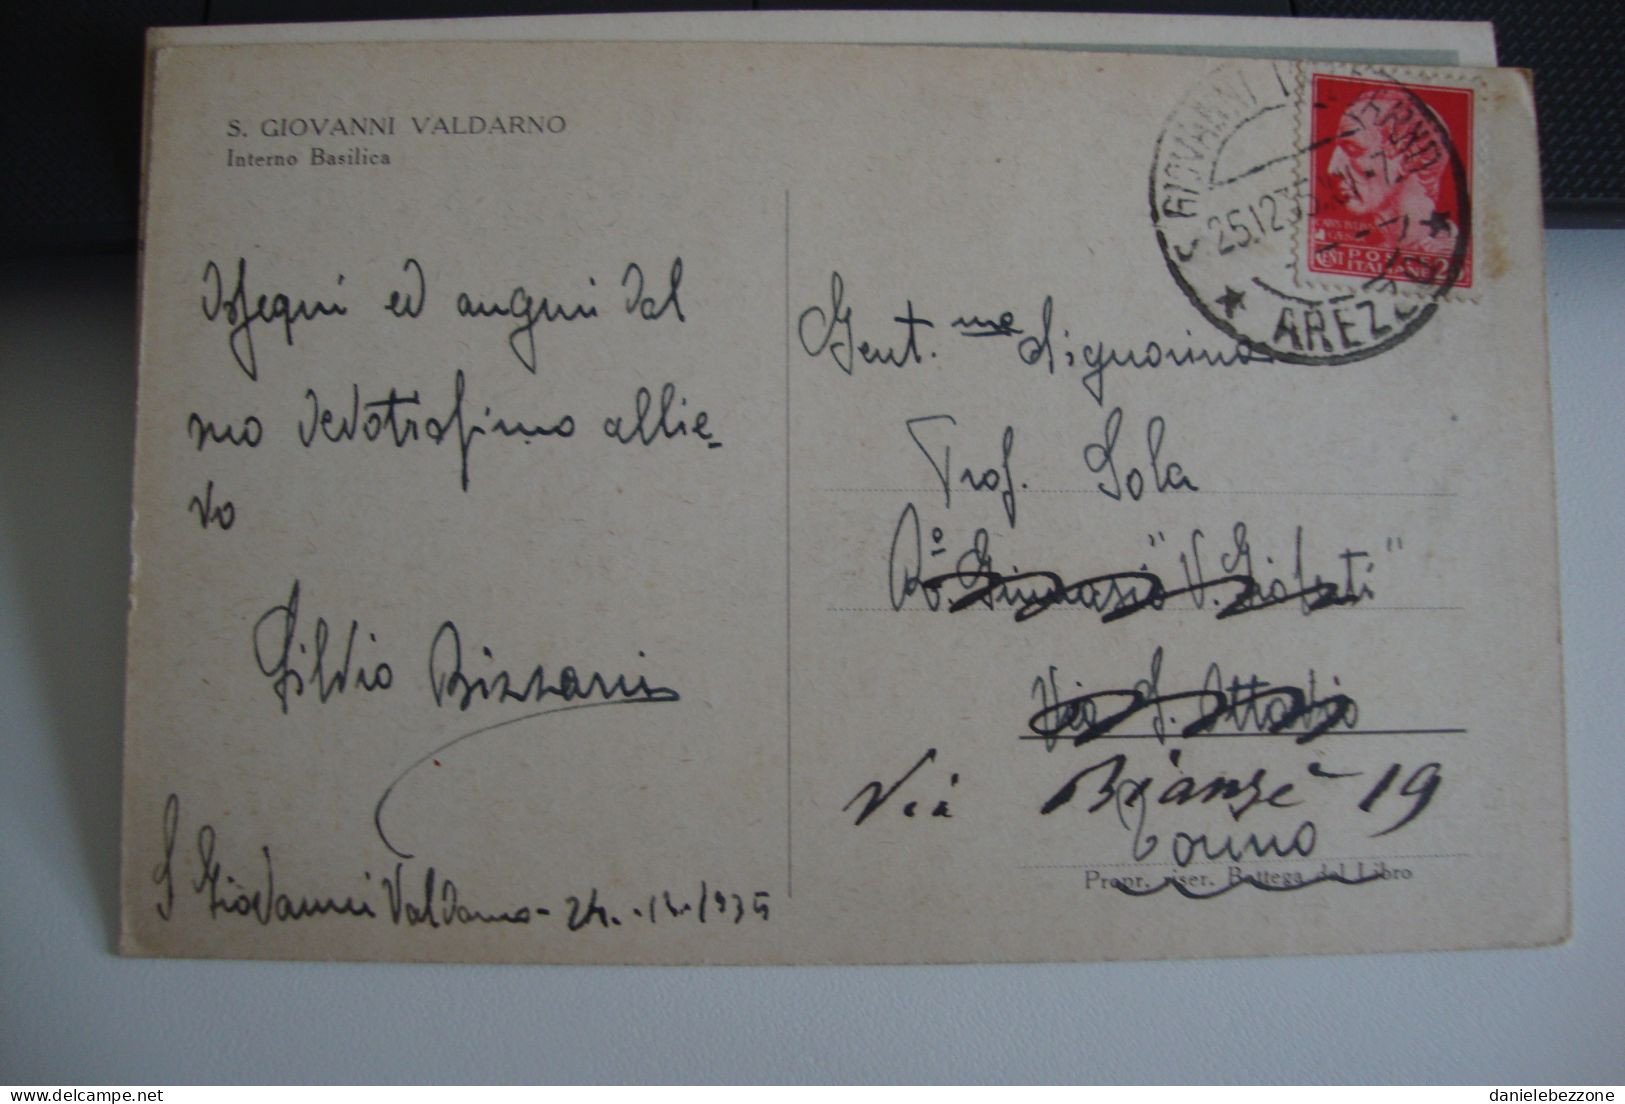 S. GIOVANNI VALDARNO
Interno Basilica
Ossequi ed auguri dal
suo devotissimo allie-
vo
Silvio Bizzarri
S Giovanni Valdarno - 24.-12.-1935
S. GIOVANNI VALDARNO
25.12.35
AREZZO
POSTE
ITALIANE
CENT 20
Gent.me Signorina
Prof. Sola
Ro. Ginnasio "V. Gioberti"
Via S. Ottavio
Via Brianzè 19
Torino
Propr. riser. Bottega del Libro
danielebezzone